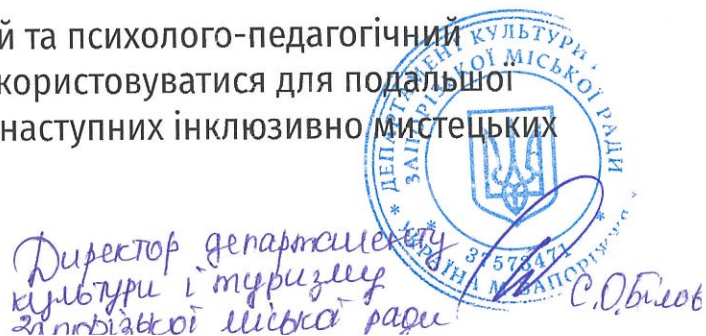 й та психолого-педагогічний
користовуватися для подальшої
наступних інклюзивно мистецьких
ДЕПАРТАМЕНТ КУЛЬТУРИ
ЗАПОРІЗЬКОЇ МІСЬКОЇ РАДИ
* УКРАЇНА М. ЗАПОРІЖЖЯ *
37573471
Директор департаменту
культури і туризму
Запорізької міської ради
С.О.Білов